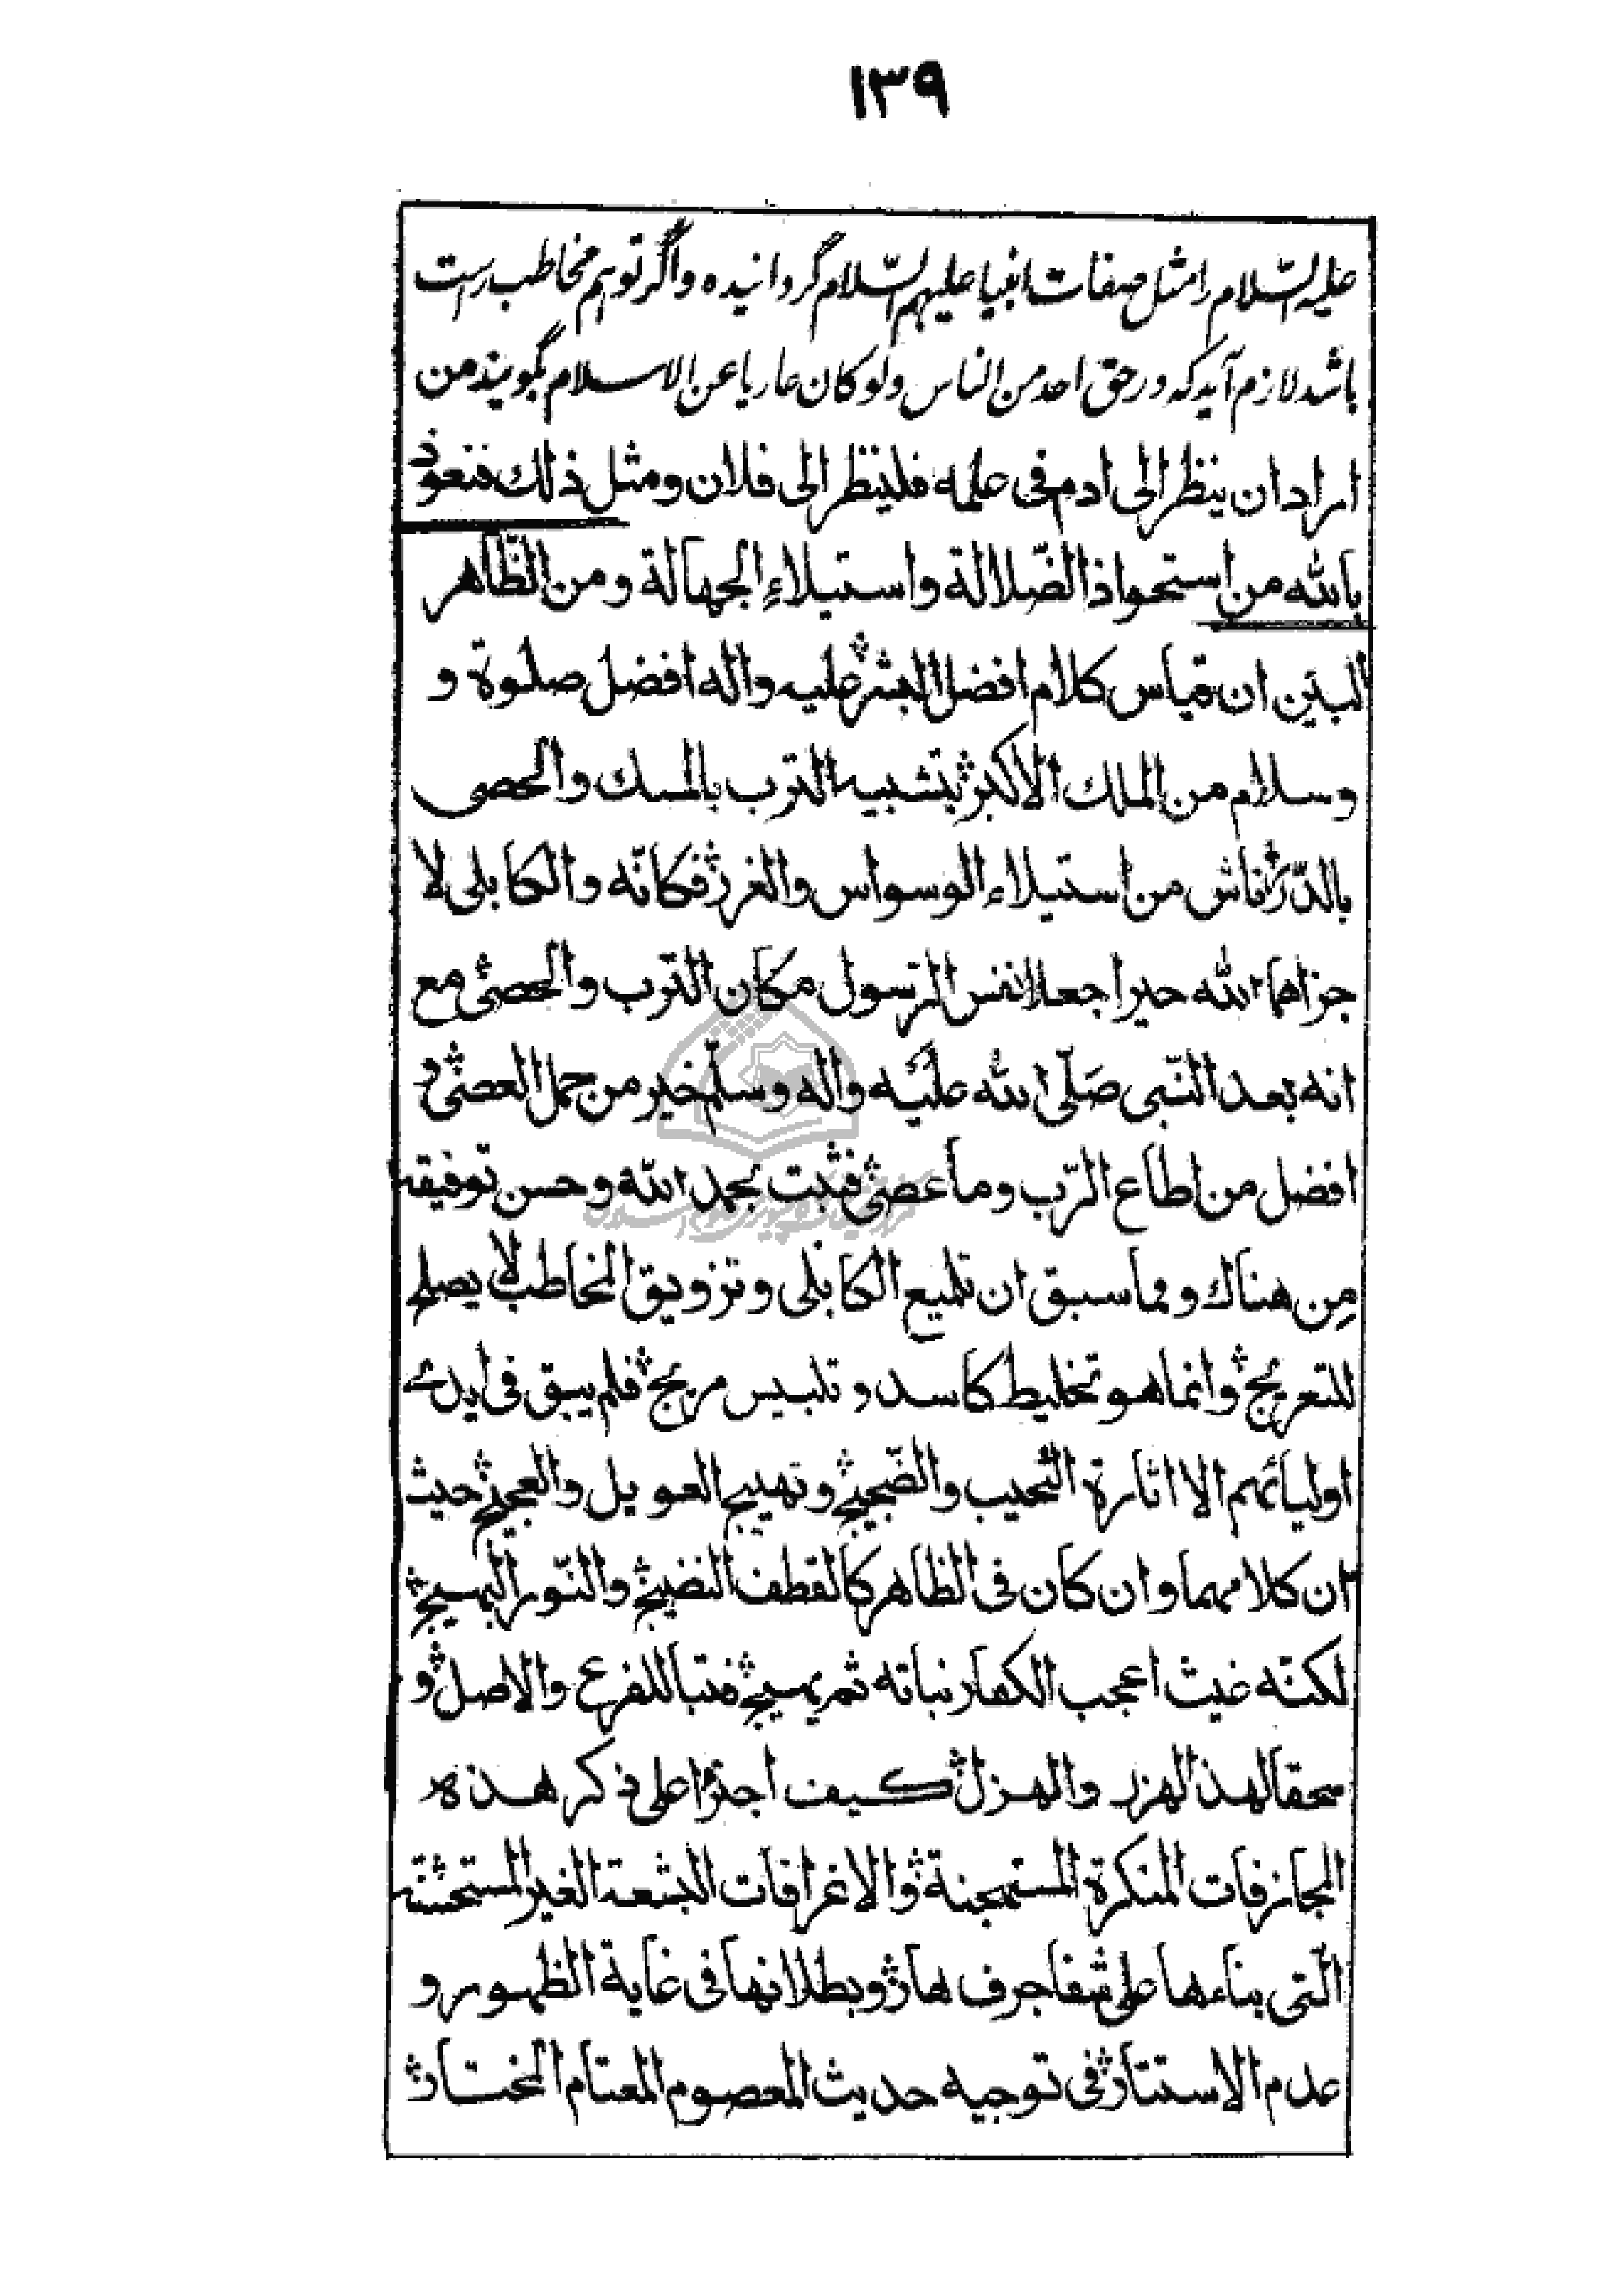 ١٣٩
علیه السّلام را مثل صفات انبیا علیهم السّلام گردانیده و اگر توهم مخاطب راست
باشد لازم آید که در حق احد من الناس ولو کان عاریا عن الاسلام بگویند من
اراد ان ینظر الی ادم فی علمه فلینظر الی فلان ومثل ذلك فنعوذ
بالله من استحواذ الضّلالة واستیلاءِ الجهالة ومن الظّاهر
البیّن ان قیاس کلام افضل البشر علیه واله افضل صلوة و
وسلام من الملك الاکبر بتشبیه الترب بالمسك والحصی
بالدّرر ناش من استیلاء الوسواس والغرر فکانّه والکابلی لا
جزاهما الله خیرا جعلا نفس الرّسول مکان التّرب والحصی مع
انه بعد النّبی صَلّی الله عَلَیْه واله وسلّم خیر من جمل العصی و
افضل من اطاع الرّب وما عصی فثبت بحمد الله وحسن توفیقه
مِن هناك ومما سبق ان تلمیع الکابلی وتزویق المخاطب لا یصلح
للتعریج وانما هو تخلیط کاسد و تلبیس مریج فلم یبق فی ایدے
اولیائهم الا اثارة النّحیب والضّجیج وتهییج العویل والعجیج حیث
ان کلامهما وان کان فی الظاهر کالقطف النضیج والنّور البهیج
لکنّه غیث اعجب الکفار نباته ثم یهیج فتبا للفرع والاصل و
سحقا لهذا الهزر والهزل کیف اجترا علی ذکر هذه
المجازفات المنکرة المستهجنة والاغراقات البشعة الغیر المستحسنة
الّتی بناءها علی شفا جرف هار وبطلانها فی غایة الظهور و
عدم الاستتار فی توجیه حدیث المعصوم المعتام المختار